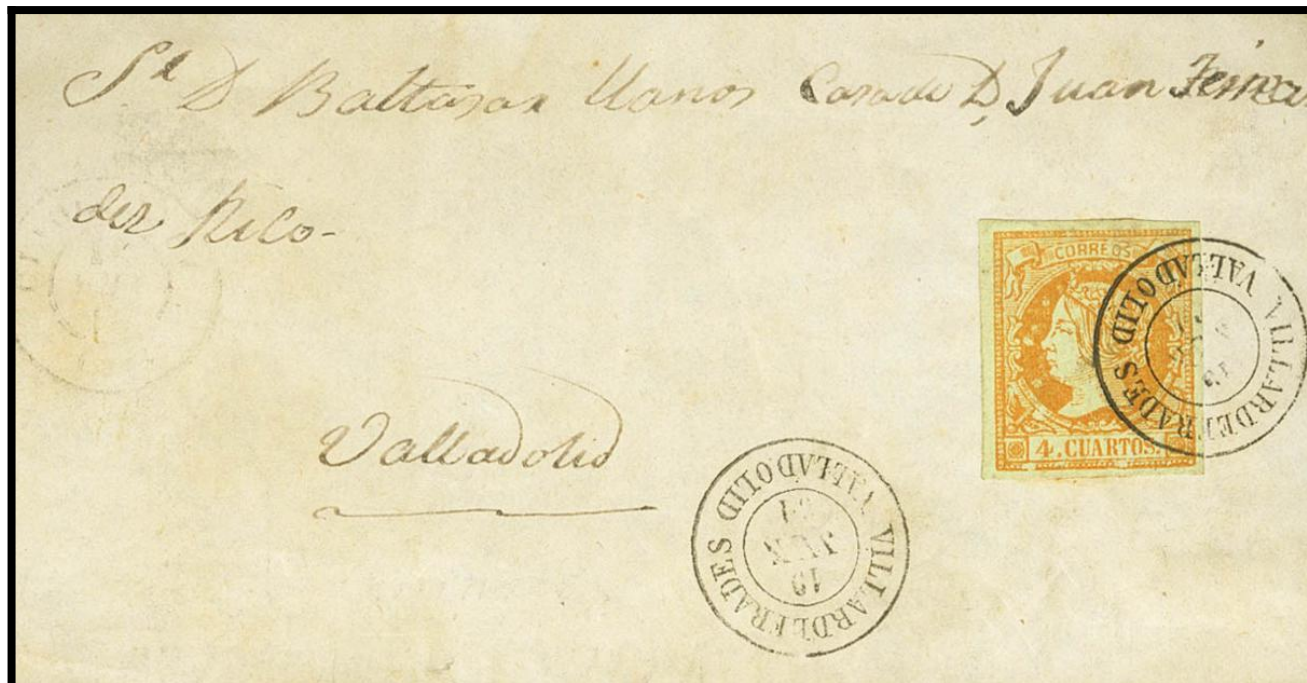 Sr D Baltasar Llanos Casa de D, Juan Fernan
dez Rico-
CORREOS
4. CUARTOS.
VILLARDEFRADES
VALLADOLID
Valladolid
VILLARDEFRADES
VALLADOLID
19
JUN
61